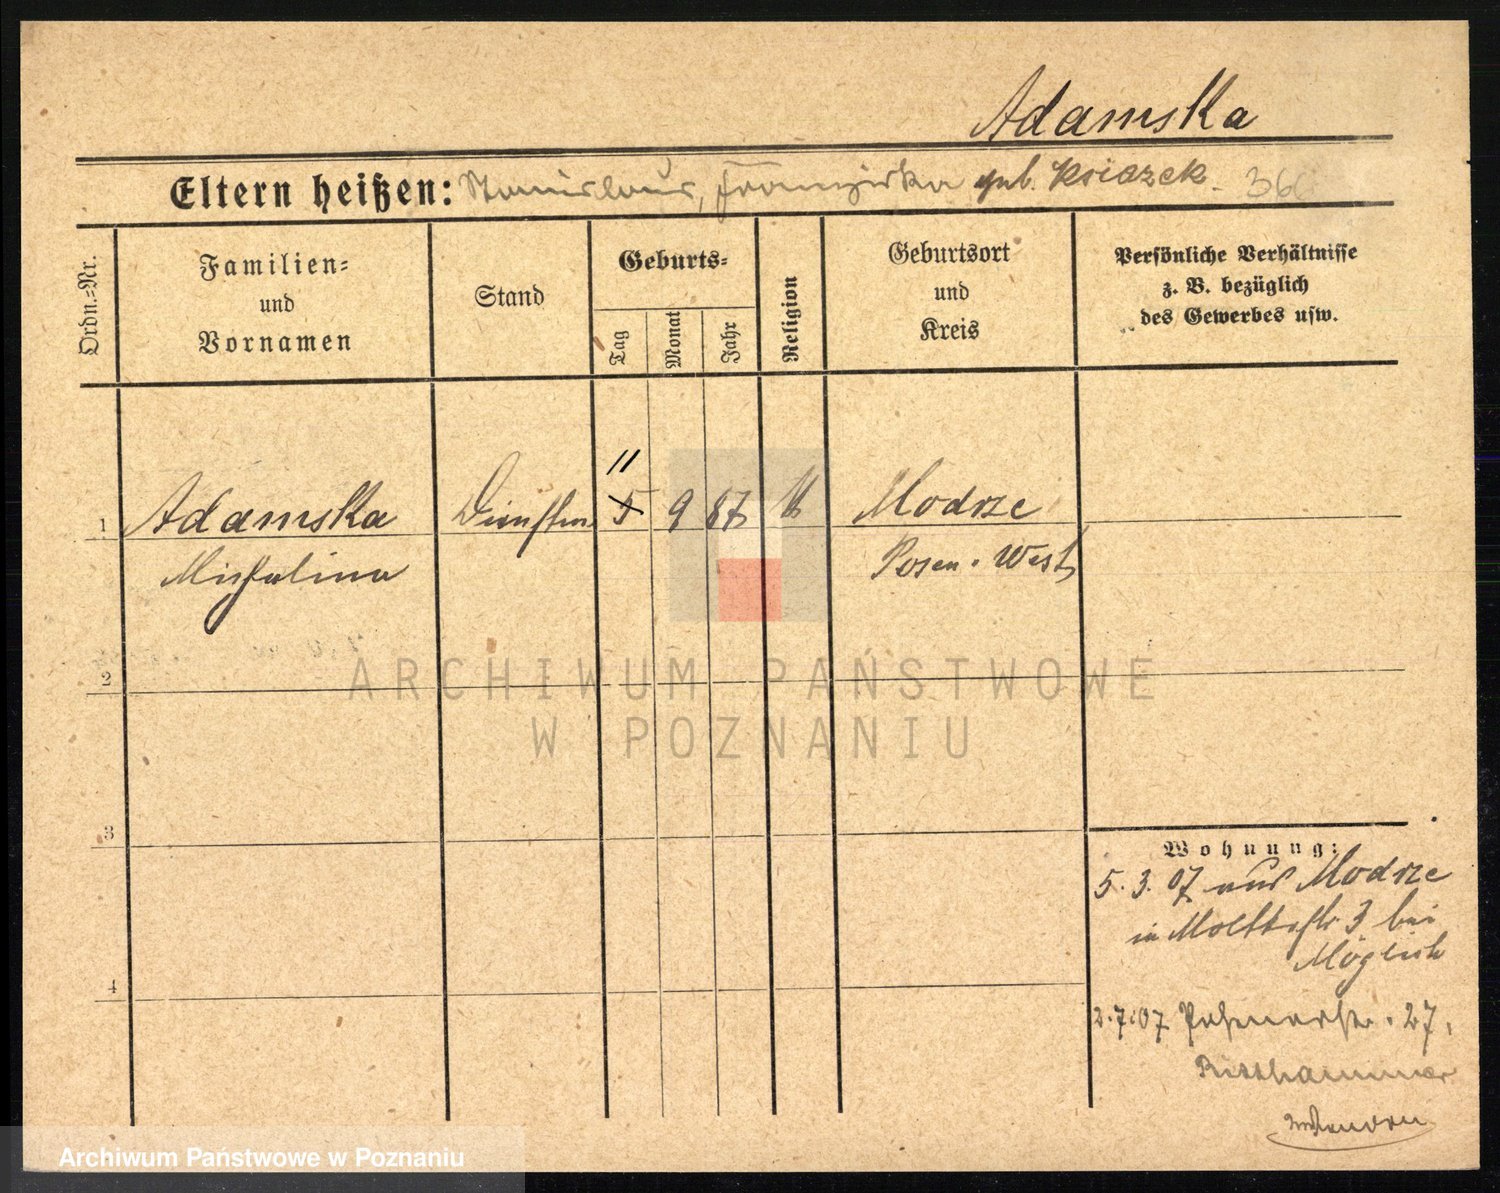 Adamska
Eltern heißen: Stanislaus, Franziska geb. Ksiazek. 366
Ordn.-Nr.
Familien-
und
Vornamen
Stand
Geburts-
Tag
Monat
Jahr
Religion
Geburtsort
und
Kreis
Persönliche Verhältnisse
z. B. bezüglich
des Gewerbes usw.
11
1 Adamska 5 9 87 k Modrze
Michalina Posen. West
2
ARCHIWUM PAŃSTWOWE
W POZNANIU
3
Wohnung:
5. 3. 07 aus Modrze
in Moltkestr 3 bei
Möglich
4
2.7.07 27,
Ritthammer
Archiwum Państwowe w Poznaniu